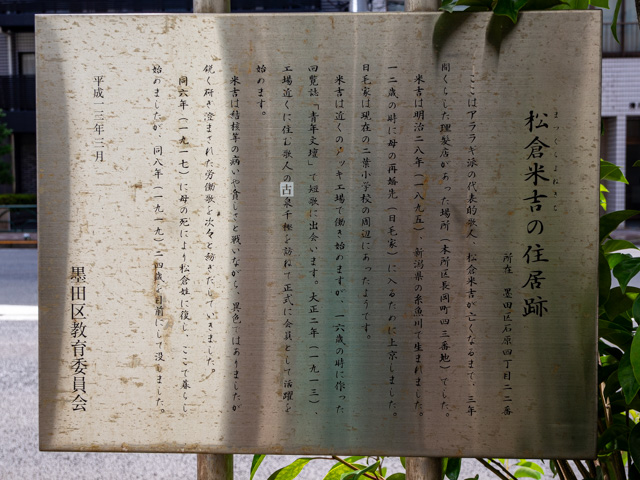 まつくらよねきち
松倉米吉の住居跡
所在 墨田区石原四丁目二二番
ここはアララギ派の代表的歌人、松倉米吉が亡くなるまで、三年
間くらした理髪店があった場所(本所区長岡町四三番地)でした。
米吉は明治二八年(一八九五)、新潟県の糸魚川で生まれました。
一二歳の時に母の再婚先(日毛家)に入るために上京しました。
日毛家は現在の二葉小学校の周辺にあったようです。
米吉は近くのメッキ工場で働き始めますが、一六歳の時に作った
回覧誌「青年文壇」で短歌に出会います。大正二年(一九一三)、
工場近くに住む歌人の古泉千樫を訪ねて正式に会員として活躍を
始めます。
米吉は結核等の病いや貧しさと戦いながら、異色ではありましたが
鋭く研ぎ澄まされた労働歌を次々と紡ぎだしていきました。
同六年(一九一七)に母の死により松倉姓に復し、ここで暮らし
始めましたが、同八年(一九一九)二四歳を目前にして没しました。
平成一三年三月
墨田区教育委員会